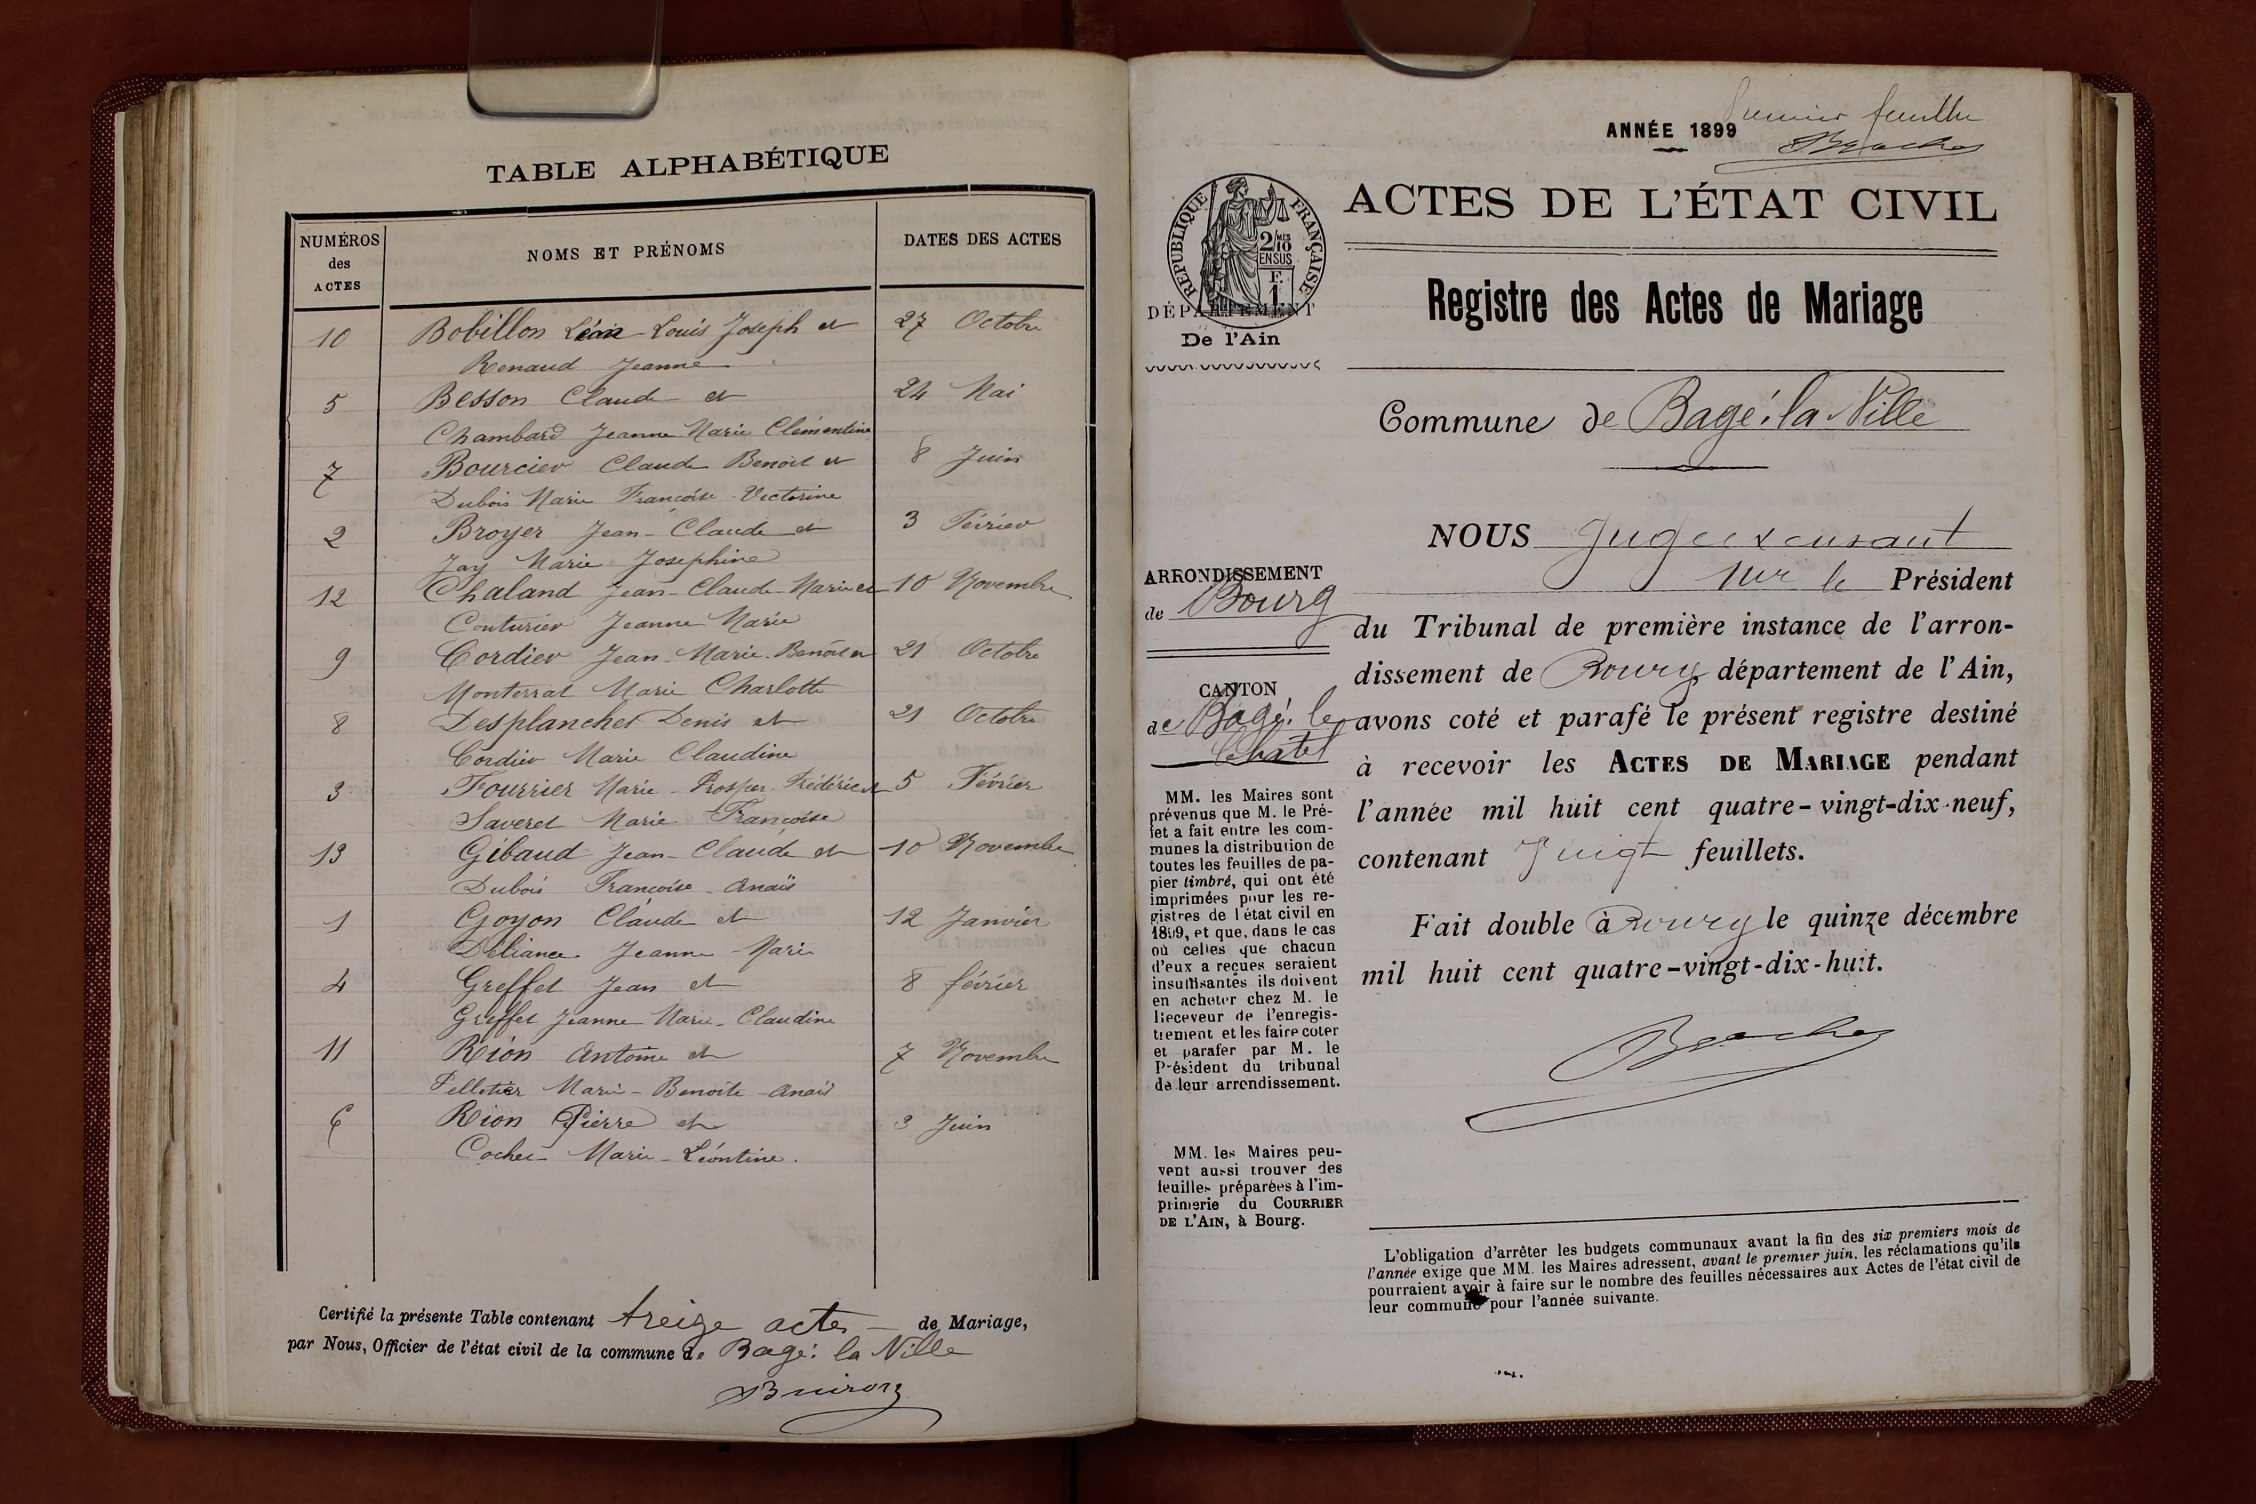 TABLE ALPHABÉTIQUE
NUMÉROS
des
ACTES
NOMS ET PRÉNOMS
DATES DES ACTES
10 Bobillon Louis Joseph et 27 Octobre
Renaud Jeanne
5 Besson Claude et 24 Mai
Chambard Jeanne Marie Clémentine
7 Bourcier Claude Benoit et 8 Juin
Dubois Marie Françoise Victorine
2 Broyer Jean-Claude et 3 Février
Jay Marie Josephine
12 Chaland Jean-Claude-Marie et 10 Novembre
Couturier Jeanne Marie
9 Cordier Jean-Marie-Benoit et 21 Octobre
Monterrat Marie Charlotte
8 Desplanches Denis et 21 Octobre
Cordier Marie Claudine
3 Fourrier Marie-Prosper-Frédéric et 5 Février
Saveret Marie Françoise
13 Gibaud Jean-Claude et 10 Novembre
Dubois Françoise-Anaïs
1 Goyon Claude et 12 Janvier
Déliance Jeanne-Marie
4 Greffet Jean et 8 février
Greffet Jeanne Marie-Claudine
11 Rion Antoine et 7 Novembre
Pelletier Marie-Benoite-Anaïs
6 Rion Pierre et 3 Juin
Cochet Marie-Léontine.
Certifié la présente Table contenant treize actes de Mariage,
par Nous, Officier de l'état civil de la commune de Bagé-la Ville
Buiron
Premier feuillet
ANNÉE 1899
RÉPUBLIQUE FRANÇAISE
2/10 MES
EN SUS
F.
1
ACTES DE L'ÉTAT CIVIL
DÉPARTEMENT
De l'Ain
Registre des Actes de Mariage
Commune de Bagé-la-Ville
ARRONDISSEMENT
de Bourg
CANTON
de Bagé-le
Chatel
MM. les Maires sont
prévenus que M. le Pré-
fet a fait entre les com-
munes la distribution de
toutes les feuilles de pa-
pier timbré, qui ont été
imprimées pour les re-
gistres de l'état civil en
1899, et que, dans le cas
où celles que chacun
d'eux a reçues seraient
insuffisantes ils doivent
en acheter chez M. le
Receveur de l'enregis-
trement et les faire coter
et parafer par M. le
Président du tribunal
de leur arrondissement.
MM. les Maires peu-
vent aussi trouver des
feuilles préparées à l'im-
primerie du COURRIER
DE L'AIN, à Bourg.
NOUS Juge
le Président
du Tribunal de première instance de l'arron-
dissement de Bourg, département de l'Ain,
avons coté et parafé le présent registre destiné
à recevoir les ACTES DE MARIAGE pendant
l'année mil huit cent quatre-vingt-dix-neuf,
contenant feuillets.
Fait double à Bourg le quinze décembre
mil huit cent quatre-vingt-dix-huit.
L'obligation d'arrêter les budgets communaux avant la fin des six premiers mois de
l'année exige que MM. les Maires adressent, avant le premier juin, les réclamations qu'ils
pourraient avoir à faire sur le nombre des feuilles nécessaires aux Actes de l'état civil de
leur commune pour l'année suivante.